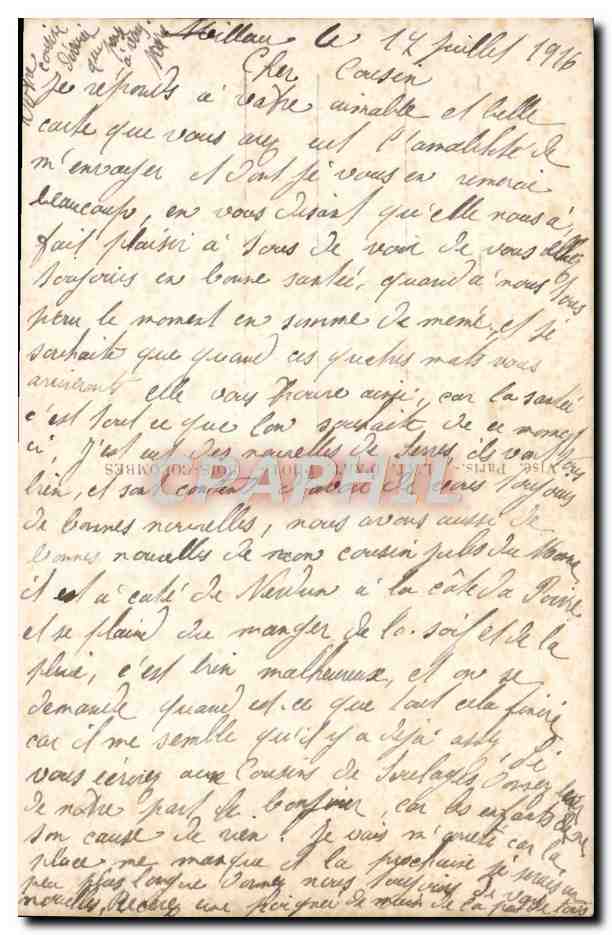 Millau le 17 juillet 1916
Cher Cousin
Je réponds à votre aimable et belle
carte que vous avez eut l'amabilité de
m'envoyer et dont je vous en remerci
beaucoup, en vous disant qu'elle nous à
fait plaisir à tous de voir de vous
toujours en bonne santée, quand à nous tous
pour le moment en somme de meme, et je
souhaite que quand ces quatres mots vous
arriveront elle vous trouve ainsi, car la santé
c'est tout ce que l'on souhaite de ce moment
ci. J'est eut des nouvelles de ils vont tous
Visé, Paris. - BOIS-COLOMBES
CPARHIL
bien, et sont content d'avoir de vous toujours
de bonnes nouvelles, nous avons aussi de
bonnes nouvelles de mon cousin
il est à coté de Verdun à la côte du Poivre
et se plaind du manger de la soif et de la
pluie, c'est bien malheureux, et on se
demande quand est-ce que tout cela finira
car il me semble qu'il y a dejà assez, Si
vous écrivez aux Cousins de
de notre part le bonjour, car les enfants ne
son cause de rien. Je vais m'arrêté car la
place me manque et la prochaine je serais un
peu plus longue donnez nous toujours de vos
nouvelles, Recevez une poigner de main de la part de tous
Votre cousin
dévoué
qui pense
à vous